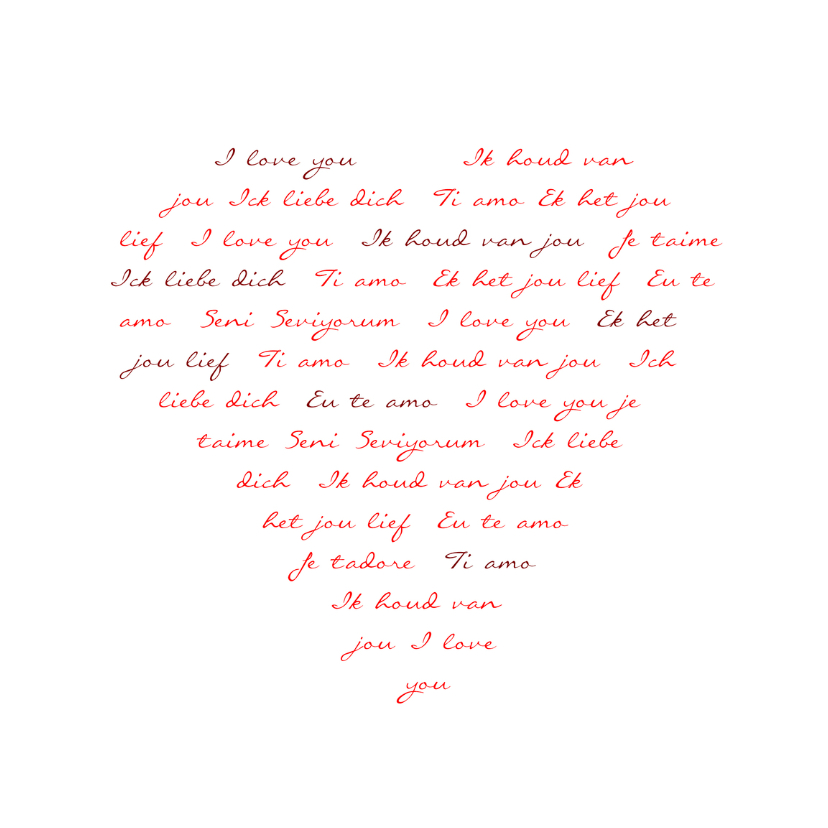 I love you Ik houd van
jou Ick liebe dich Ti amo Ek het jou
lief I love you Ik houd van jou Je taime
Ick liebe dich Ti amo Ek het jou lief Eu te
amo Seni Seviyorum I love you Ek het
jou lief Ti amo Ik houd van jou Ich
liebe dich Eu te amo I love you je
taime Seni Seviyorum Ick liebe
dich Ik houd van jou Ek
het jou lief Eu te amo
Je tadore Ti amo
Ik houd van
jou I love
you